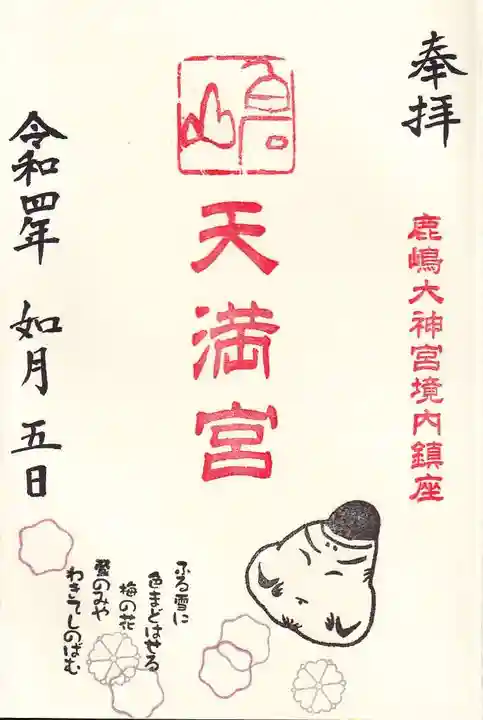 奉拝
鹿嶋大神宮境内鎮座
天満宮
令和四年 如月 五日
ふる雪に
色まどはせる
梅の花
鶯のみや
わきてしのばむ